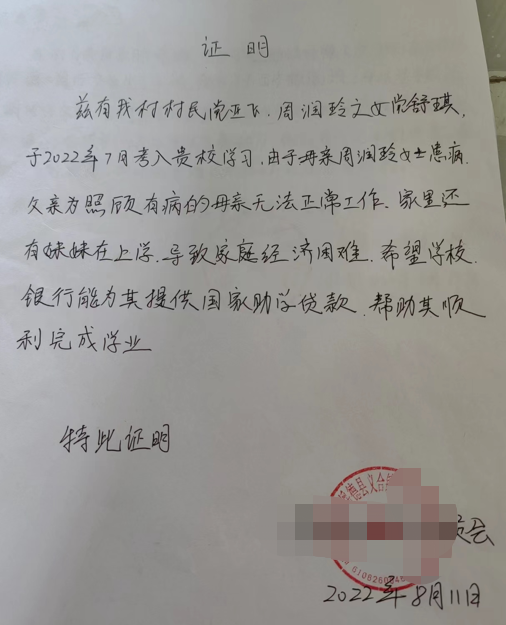 证 明
兹有我村村民党亚飞、周润玲之女党舒琪,
于2022年7月考入贵校学习,由于母亲周润玲女士患病.
父亲为照顾有病的母亲无法正常工作.家里还
有妹妹在上学.导致家庭经济困难.希望学校.
银行能为其提供国家助学贷款.帮助其顺
利完成学业
特此证明
德县义合
员会
6108260
2022年8月11日